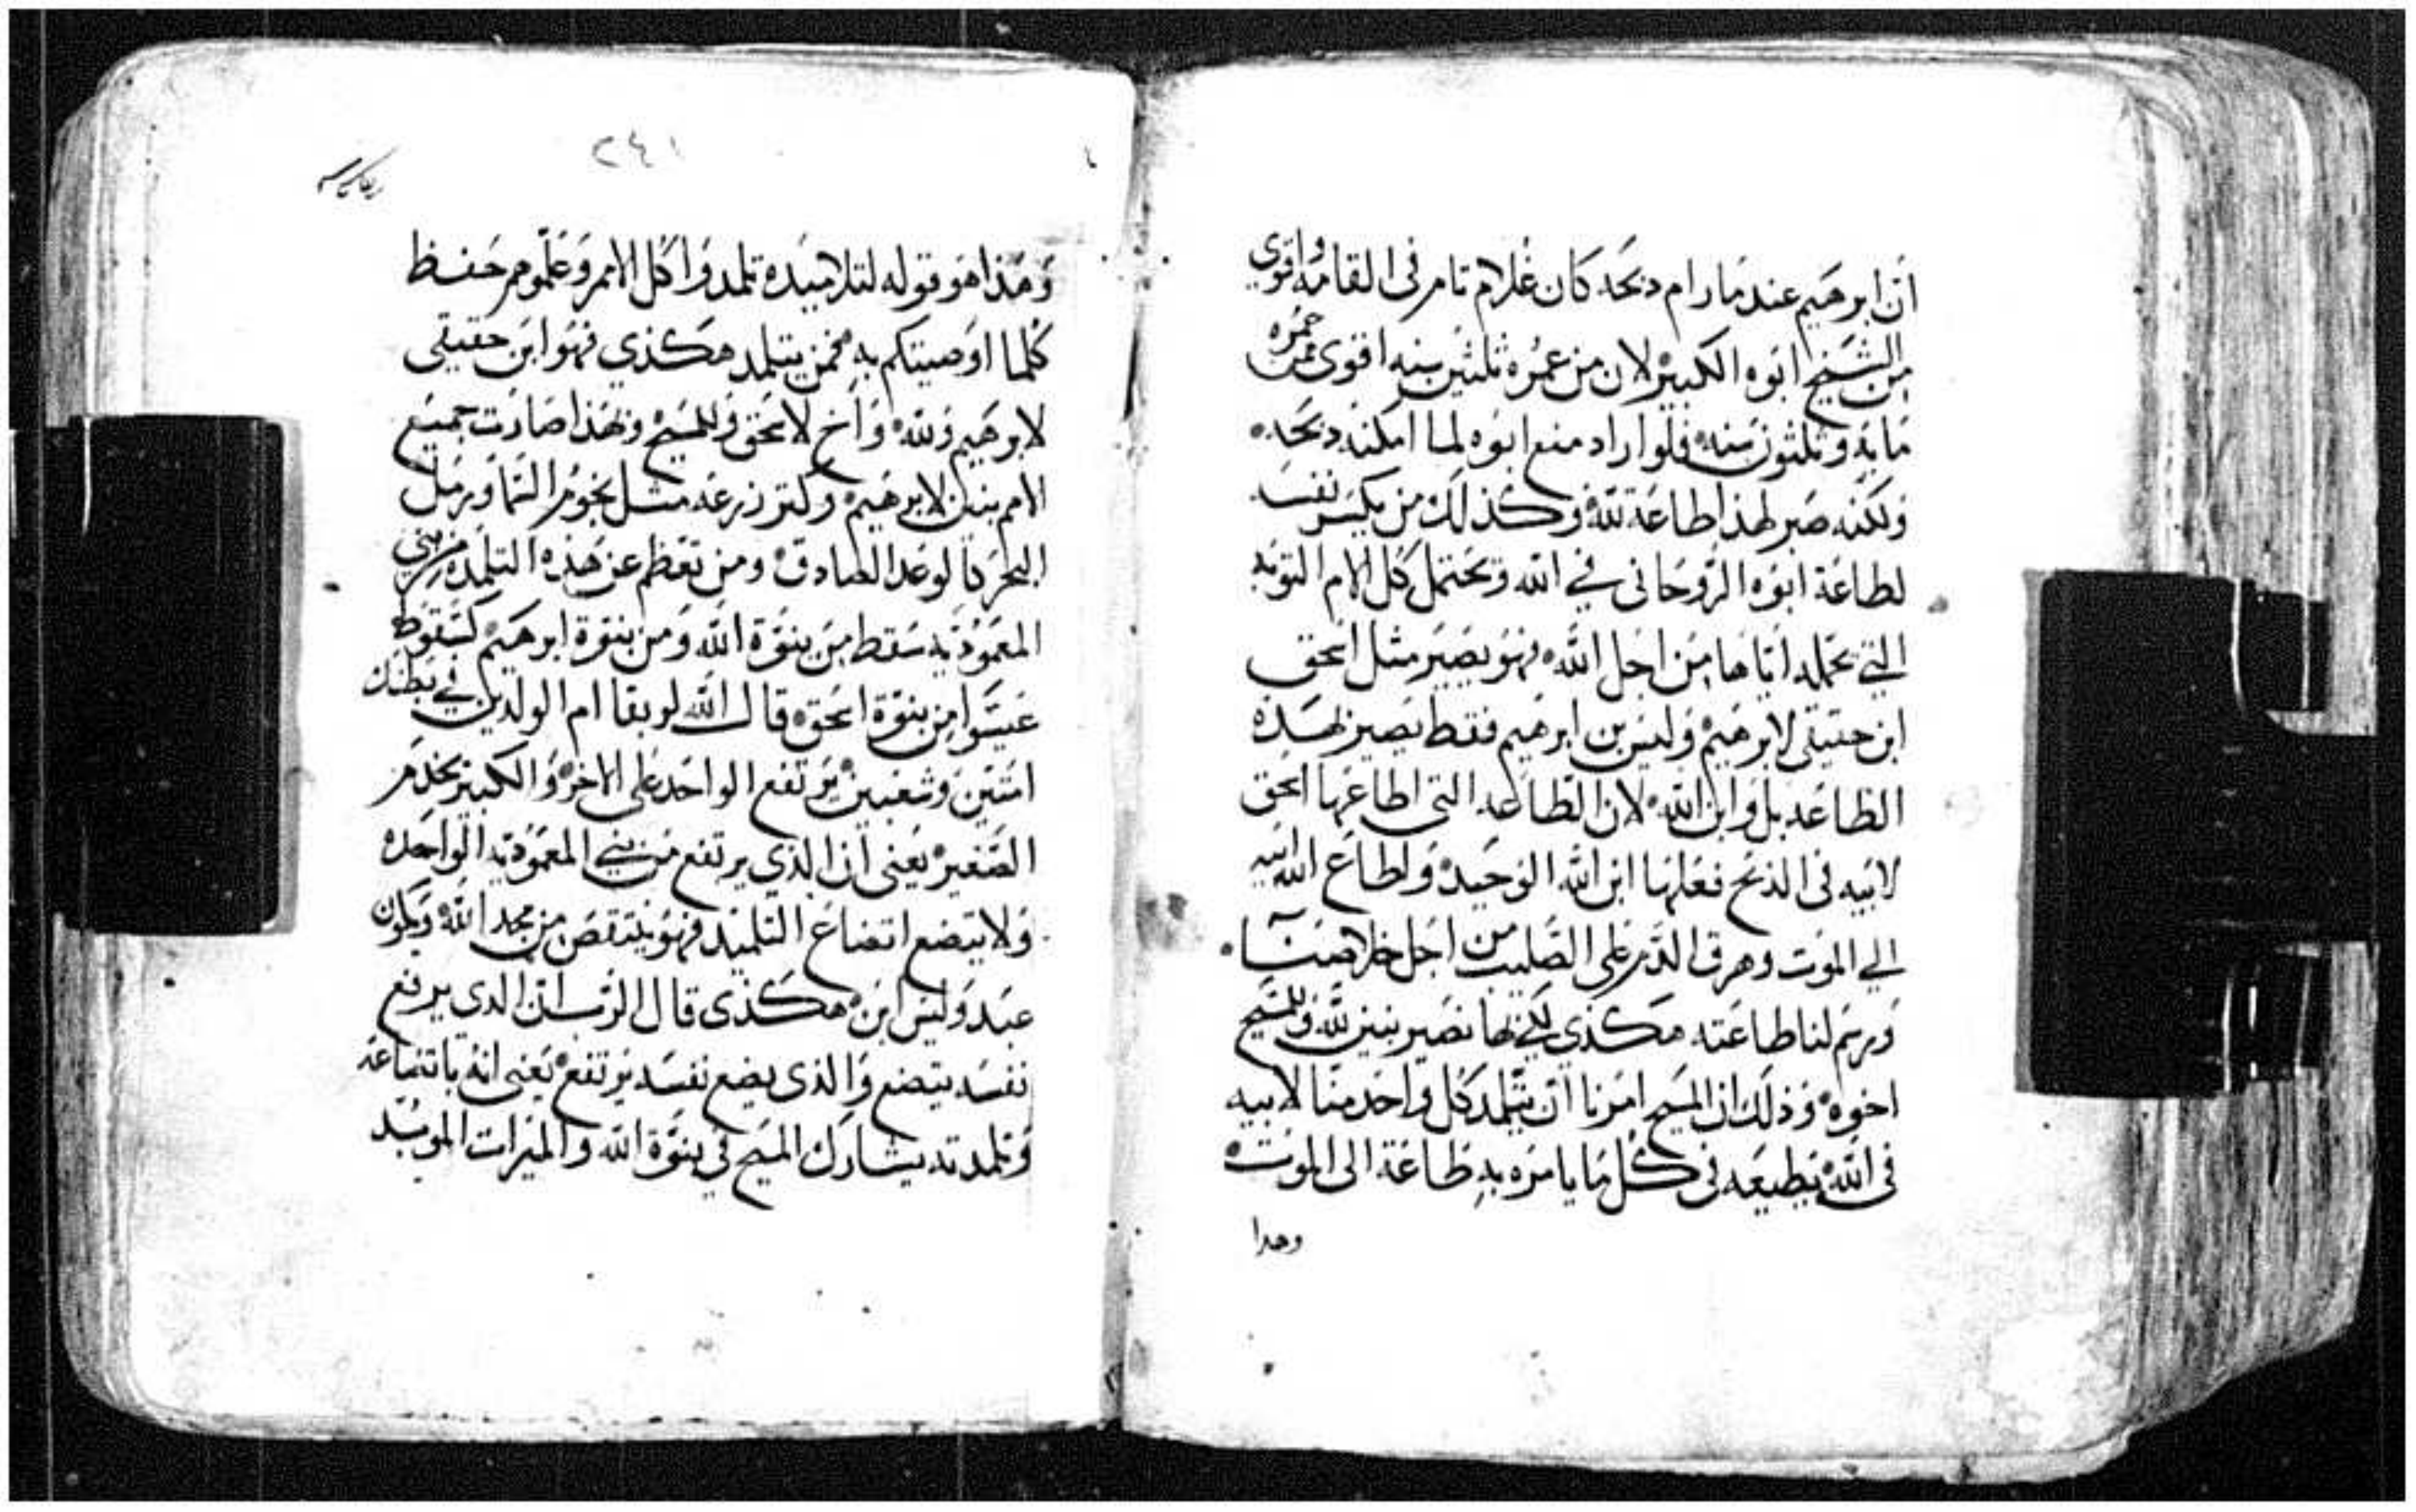 ان ابرهيم عندما رام دبحه كان غلام تام في القامه واقوي
من الشيخ ابوه الكبير لان من عمره ثلثين سنه اقوي ممن عمره
مايه وثلثون سنه فلو اراد منع ابوه لما امكنه دبحه
ولكنه صبر لهذا طاعة لله وكذلك من يكسر نفسه
لطاعة ابوه الروحاني في الله ويحتمل كل الام التوبه
التي يحمله اياها من اجل الله فهو يصير مثل اسحق
ابن حقيقي لابرهيم وليس بن ابرهيم فقط يصير بهذه
الطاعه بل وابن الله لان الطاعه التي اطاعها اسحق
لابيه في الذبح فعلها ابن الله الوحيد واطاع الله ابيه
الي الموت وهرق الدم على الصليب من اجل خلاصنا
ورسم لنا طاعته هكذي لكي بها نصير بنين لله وللمسيح
اخوه وذلك ان المسيح امرنا ان يتلمد كل واحد منا لابيه
في الله يطيعه في كل ما يامره به طاعة الى الموت
وهدا
٢٤١
وهذا هو قوله لتلاميده تلمدوا كل الامم وعلموهم حفظ
كلما اوصيتكم به فمن يتلمد هكذي فهو ابن حقيقي
لابرهيم ولله واخ لاسحق وللمسيح وبهذا صارت جميع
الامم بنين لابرهيم وكتر زرعه مثل نجوم السما ورمل
البحر بالوعد الصادق ومن تعظم عن هذه التلمده من بني
المعموديه سقط من بنوة الله ومن بنوة ابرهيم كسقوط
عيسوا من بنوة اسحق قال الله لربقا ام الولدين في بطنك
امتين وشعبين يرتفع الواحد على الاخر والكبير يخدم
الصغير يعني ان الذي يرتفع من بني المعموديه الواحده
ولا يتضع اتضاع التلميد فهو ينتقص من مجد الله ويكون
عبد وليس ابن هكذى قال الرب ان الدى يرفع
نفسه يتضع والذى يضع نفسه يرتفع يعني انه باتضاعه
وتلمدته يشارك المسيح في بنوة الله والميرات الموبد